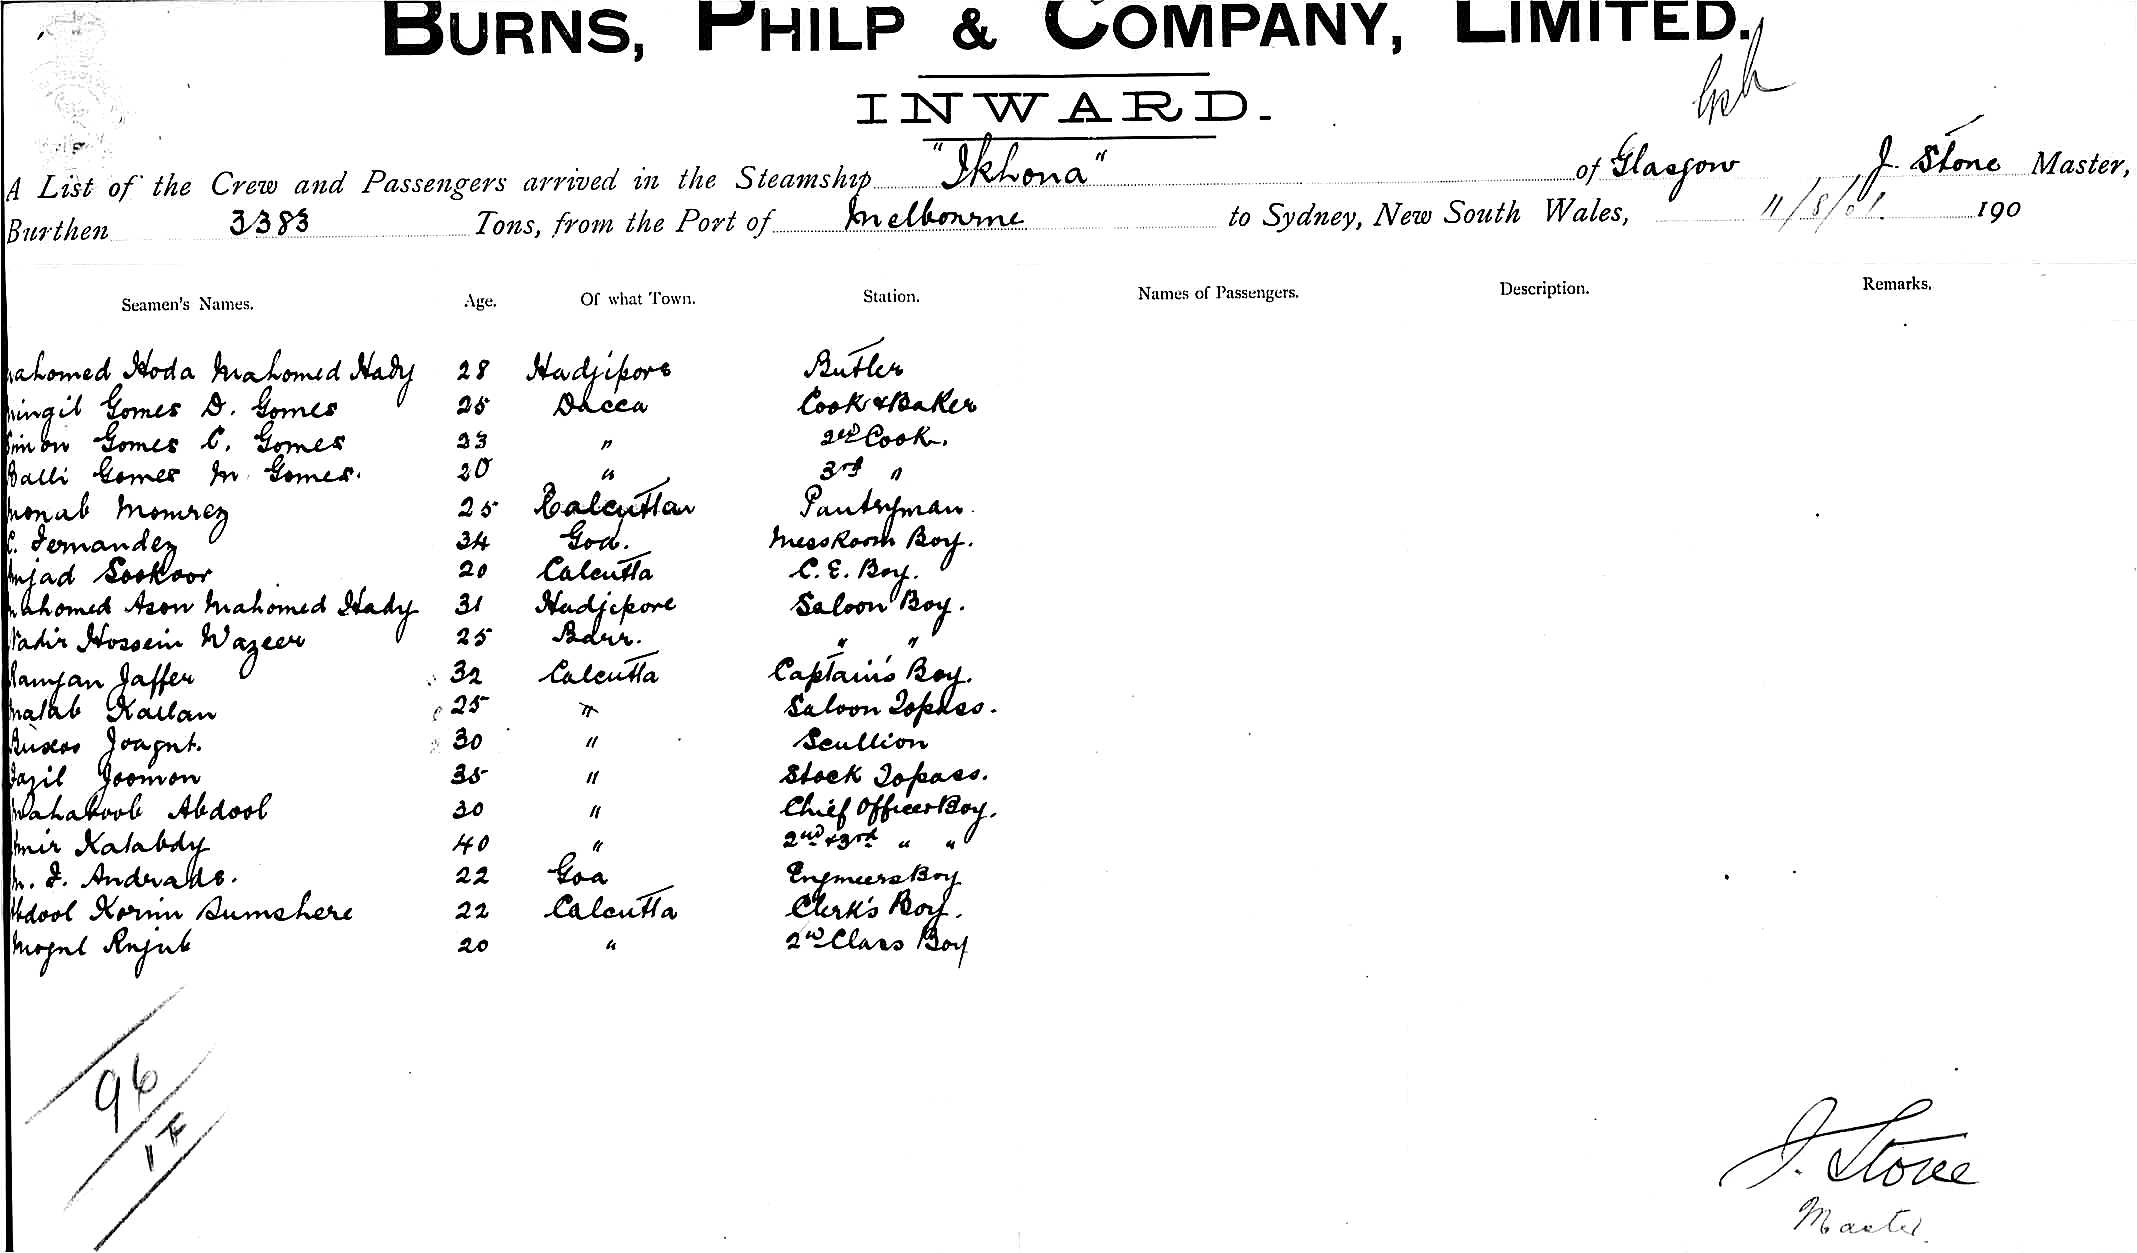 BURNS, PHILP & COMPANY, LIMITED.
INWARD.
A List of the Crew and Passengers arrived in the Steamship "Ikhona" of Glasgow J. Stone Master,
Burthen 3383 Tons, from the Port of Melbourne to Sydney, New South Wales, 11/8/01. 190
Seamen's Names. Age. Of what Town. Station. Names of Passengers. Description. Remarks.
ahomed Hoda Mahomed Hady 28 Hadjipore Butler
Gomes D. Gomes 25 Dacca Cook & Baker
Gomes C. Gomes 23 " 2nd Cook.
Balli Gomes M. Gomes. 20 " 3rd "
25 Calcutta Pantryman.
Fernandez 34 Goa. Mess Room Boy.
mjad Sookoor 20 Calcutta C. E. Boy.
ahomed Ason Mahomed Hady 31 Hadjipore Saloon Boy.
Hossein Wazeer 25 Barr. " "
Ramjan Jaffer 32 Calcutta Captain's Boy.
Kallan 25 " Saloon Topass.
30 " Scullion
Fazil Joomon 35 " Topass.
Mahaboob Abdool 30 " Chief Officer Boy.
mir 40 " 2nd & 3rd " "
M. F. Andrade. 22 Goa Engineers Boy
bdool Korim Sumshere 22 Calcutta Clerk's Boy.
Mogul Rujub 20 " 2nd Class Boy
96
J. Stone
Master.